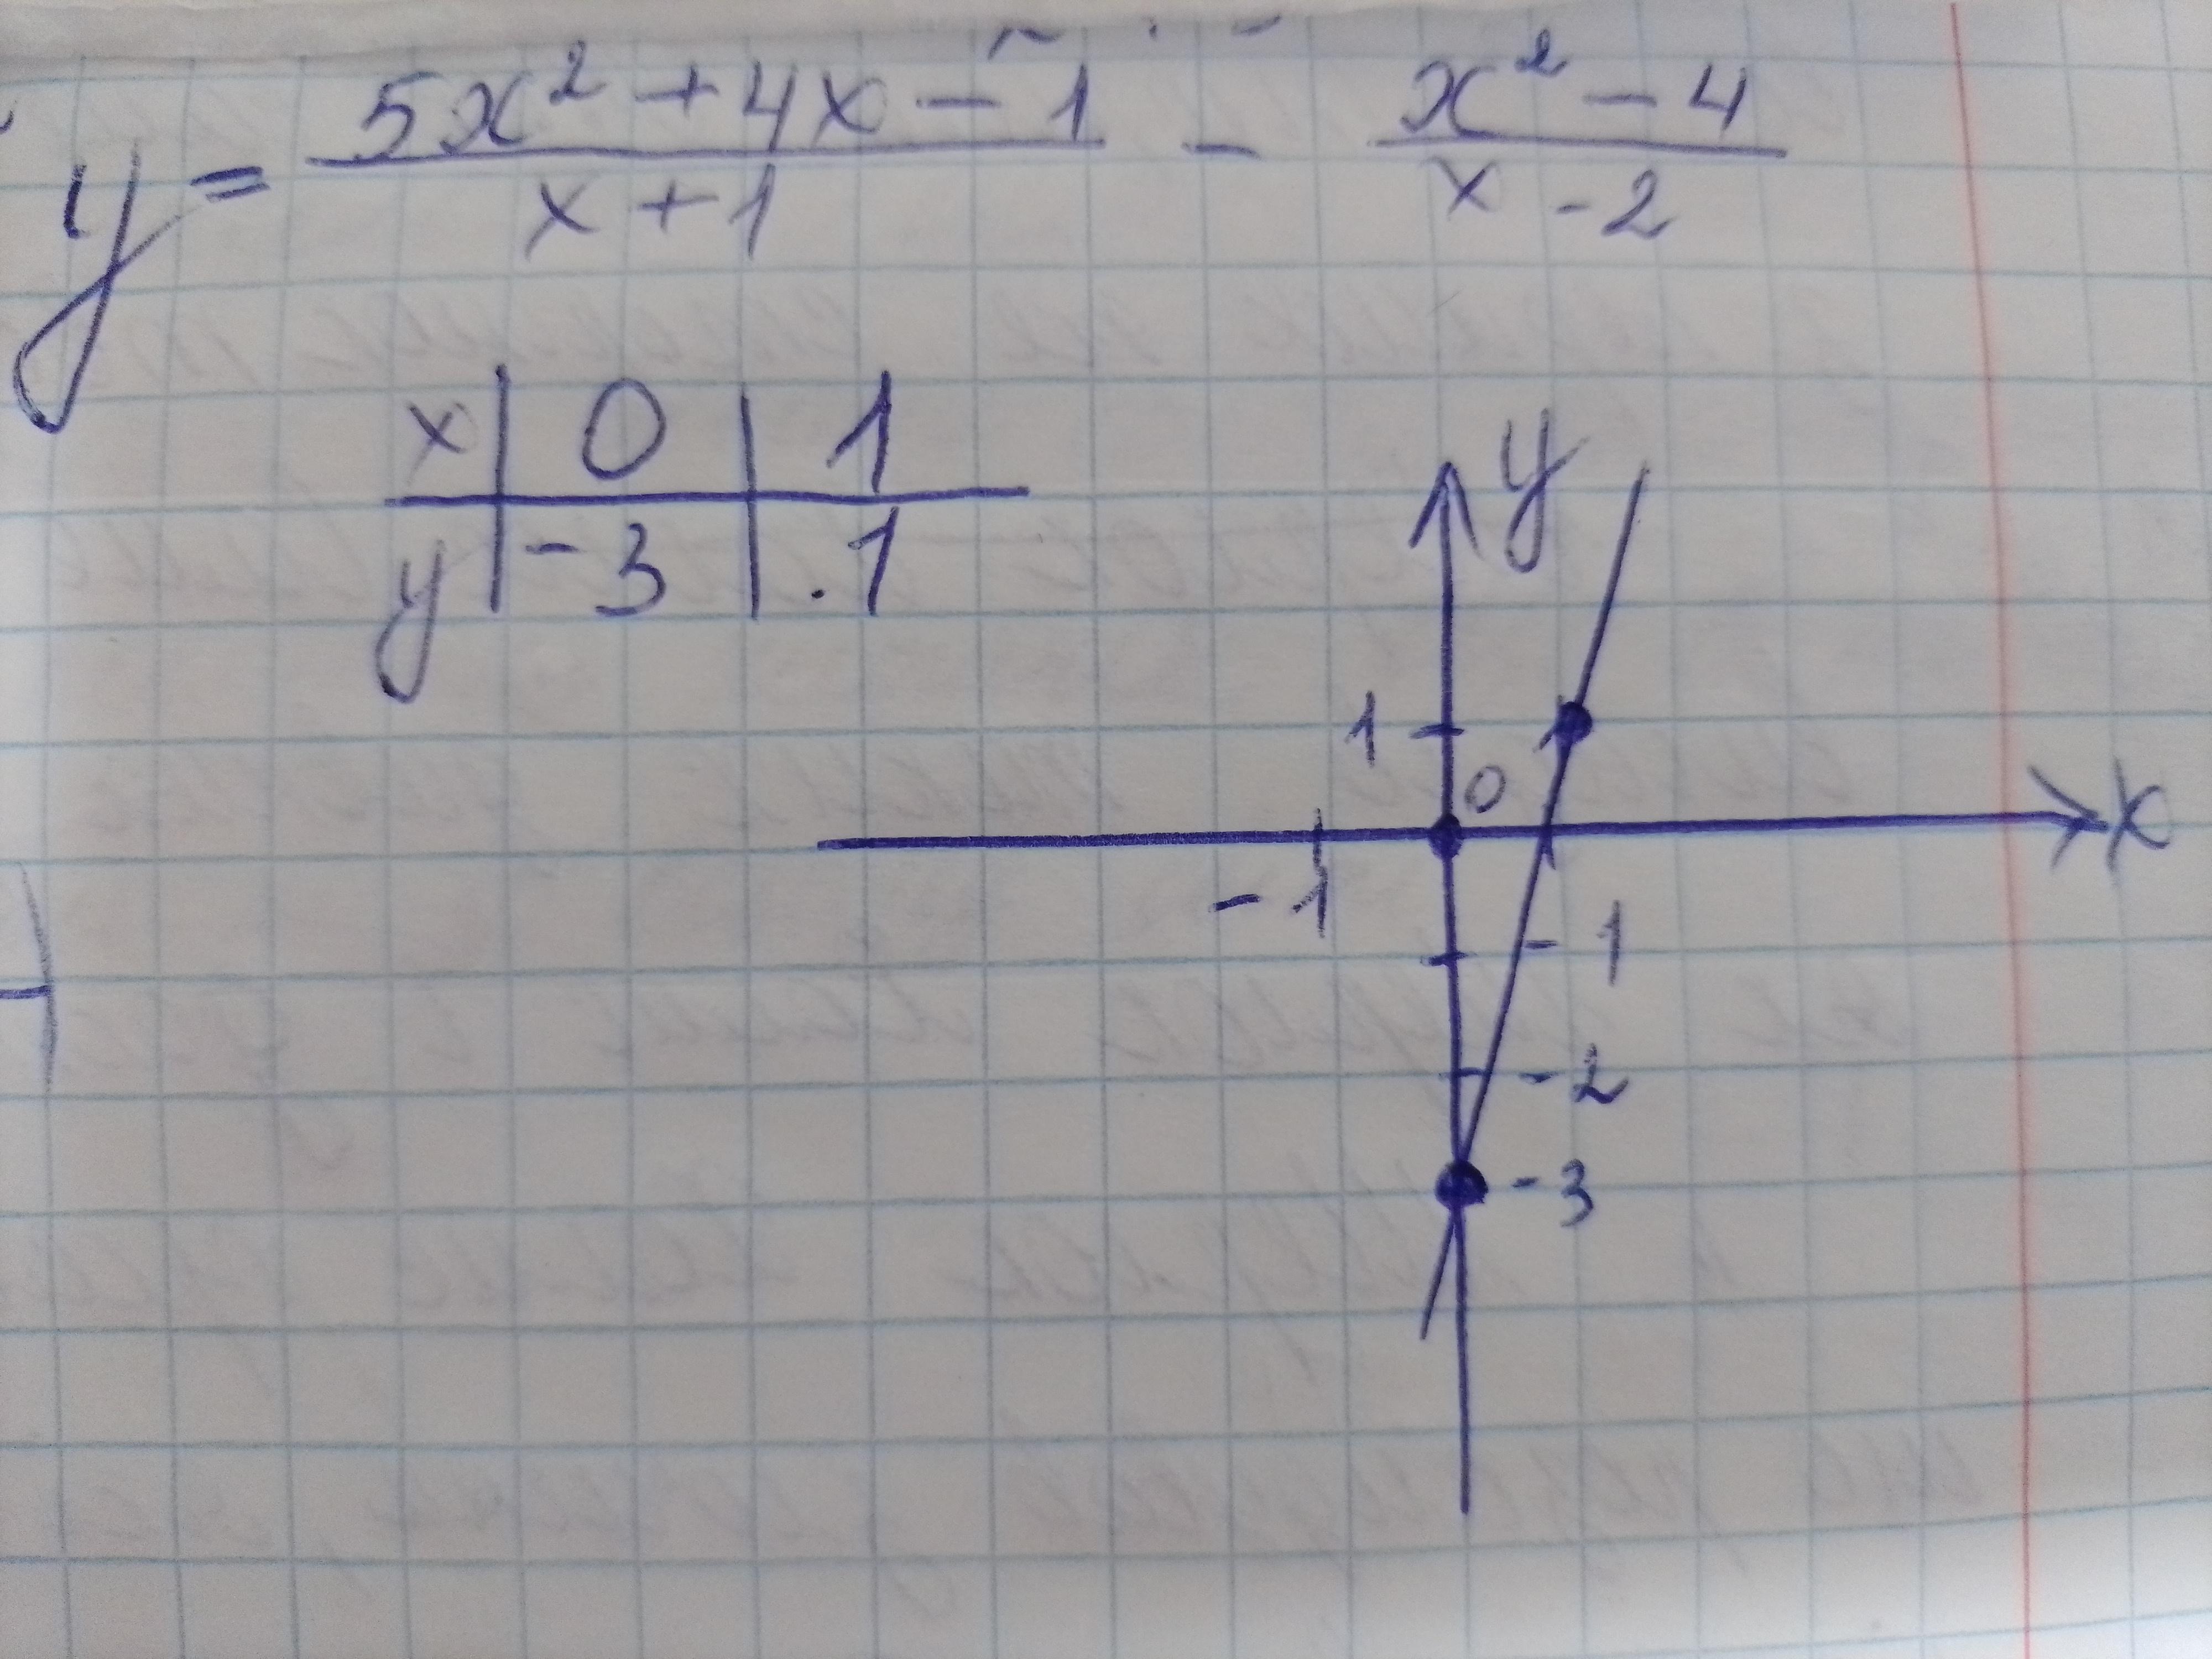 y = (5x² + 4x - 1)/(x + 1) - (x² - 4)/(x - 2)
x | 0 | 1
y | -3 | .1
y
1
0
x
-1
-1
-2
-3